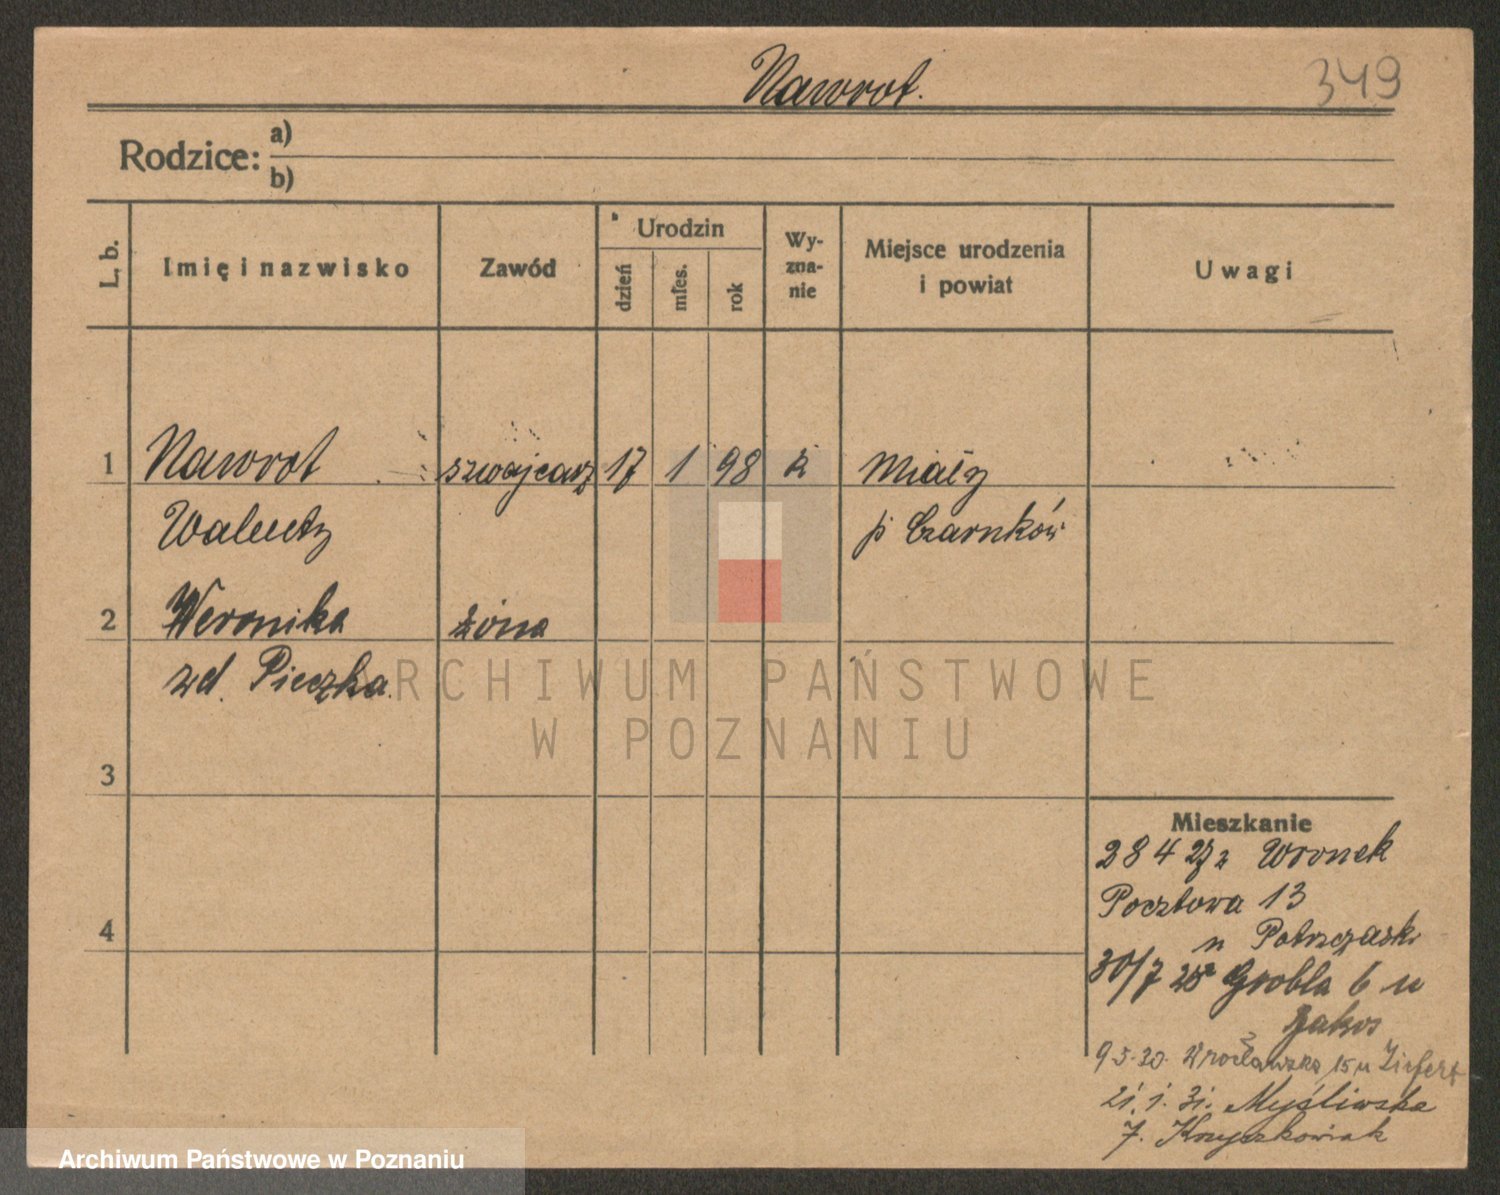 Nawrot. 349
Rodzice: a)
b)
L. b. Imię i nazwisko Zawód Urodzin Wy-zna-nie Miejsce urodzenia i powiat Uwagi
dzień mies. rok
1 Nawrot szwajcarz 17 1 98 k Miały
p Czarnków
2 Weronika żona
zd. Pieczka
3
Mieszkanie
28 4 27 z Wronek
Pocztowa 13
4
30/7 28 Grobla 6 u
9.5.30. Wrocławska 15 u
21. 1. 31. Myśliwska
7. Krzyszkowiak
ARCHIWUM PAŃSTWOWE
W POZNANIU
Archiwum Państwowe w Poznaniu